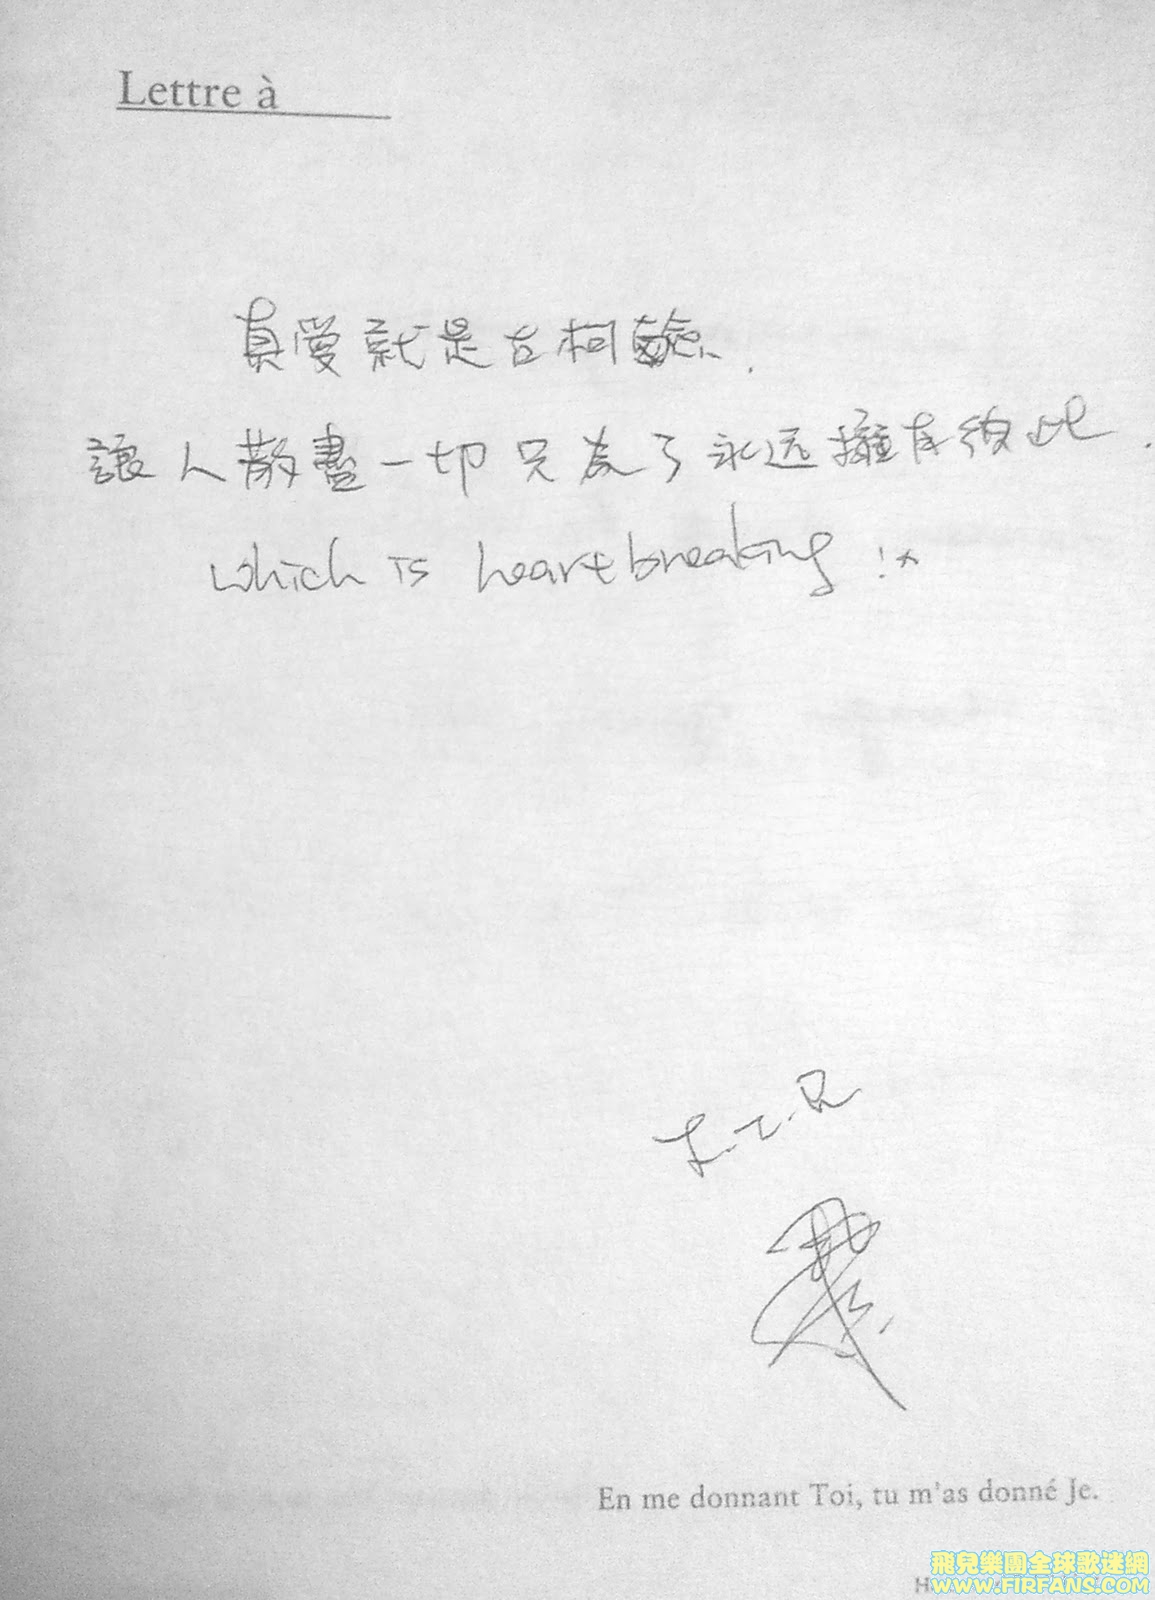 Lettre à
真愛就是古柯鹼.
讓人散盡一切只為了永远擁有彼此.
which is heartbreaking !
En me donnant Toi, tu m'as donné Je.
飛兒樂團全球歌迷網
WWW.FIRFANS.COM